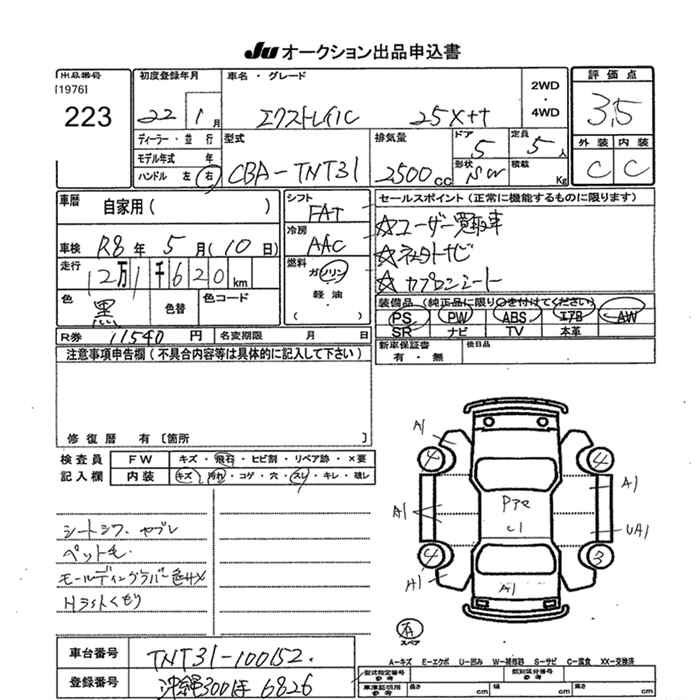 JU オークション出品申込書
出品番号
[1976]
223
初度登録年月
22 1 月
車名・グレード
エクストレイル 25Xtt
2WD
・
4WD
評価点
3,5
外装 内装
C C
ディーラー・並行
モデル年式 年
ハンドル 左 右
型式
CBA-TNT31
排気量
2500 cc
ドア
5
形状
SW
定員
5 人
積載
Kg
車歴
自家用( )
車検 R8 年 5 月(10 日)
走行
12万1千620 km
色
黒
色替
色コード
シフト
FAT
冷房
AAC
燃料
ガソリン
軽油
・
( )
セールスポイント(正常に機能するものに限ります)
☆ユーザー買取車
☆社外ナビ
☆カプロンシート
装備品(純正品に限り○を付けてください)
PS PW ABS エアB AW
SR ナビ TV 本革
R券 11540 円
名変期限 月 日
新車保証書
有・無
後日品
注意事項申告欄(不具合内容等は具体的に記入して下さい)
修復歴 有〔箇所 〕
検査員
記入欄
FW キズ・飛石・ヒビ割・リペア跡・×要
内装 キズ・汚れ・コゲ・穴・スレ・キレ・破レ
シートシワ、ヤブレ
ペット毛
モールディングラバー色サメ
Hライトくもり
A1
4 4
A1
Pアセ
C1
A1
UA1
4 3
A1
A1
スペア
車台番号 TNT31-100152.
登録番号 沖縄300ほ6826
A-キズ E-エクボ U-凹み W-補修跡 S-サビ C-腐食 XX-交換済
型式指定番号
参考
類別区分番号
参考
車庫証明用
参考
長さ cm 幅 cm 高さ cm